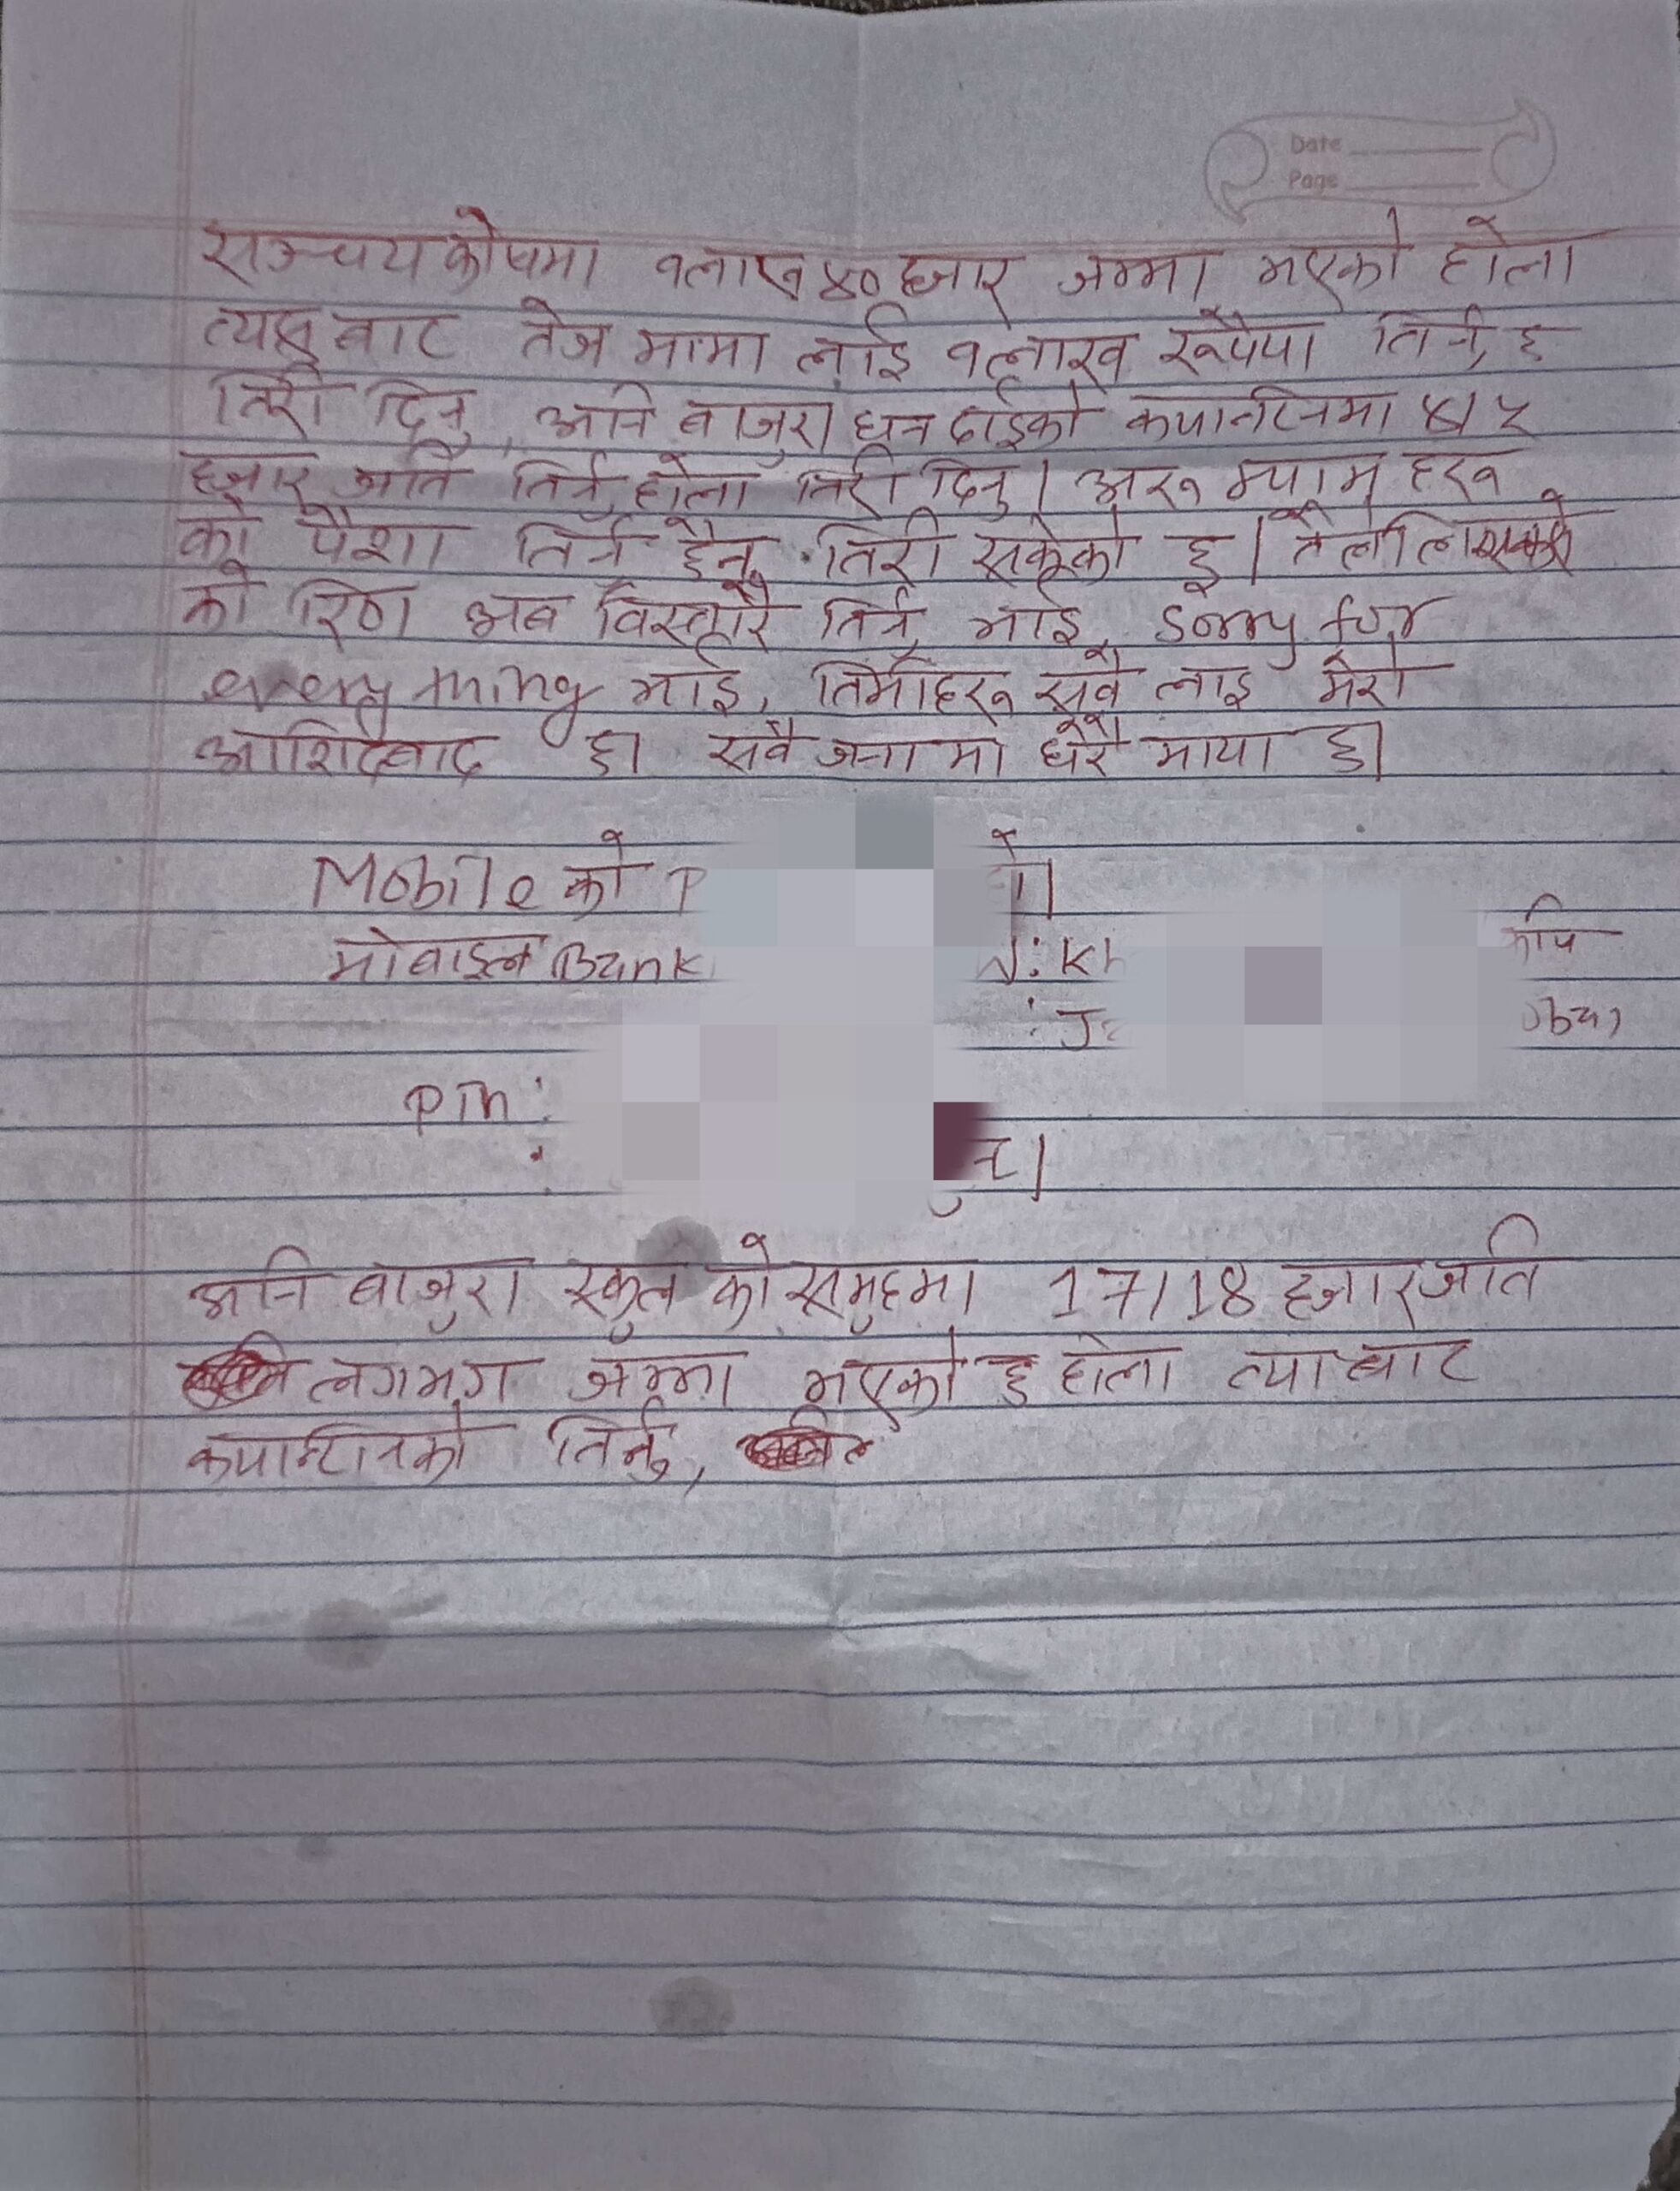 Date
Page
सञ्चयकोषमा १लाख ४० हजार जम्मा भएको होला
त्यसबाट तेज मामा लाई १लाख रूपैया तिर्नु छ
तिरी दिनु, अनि बाजुरा धन दाईको क्यानटिनमा ४/५
हजार जति तिर्नु होला तिरी दिनु। अरू म्याम हरू
को पैशा तिर्नु छैन, तिरी सकेको छु।
को रिण अब विस्तारै तिर्नु भाई, sorry for
every thing भाई, तिमीहरू सबै लाइ मेरो
आशिर्बाद छ। सबै जना मा धेरै माया छ।
Mobile को P
मोबाइल Bank
Pin:
अनि बाजुरा स्कुल को समुहमा 17/18 हजार जति
लगभग जम्मा भएको छ होला त्याबाट
क्यान्टिनको तिर्नु,